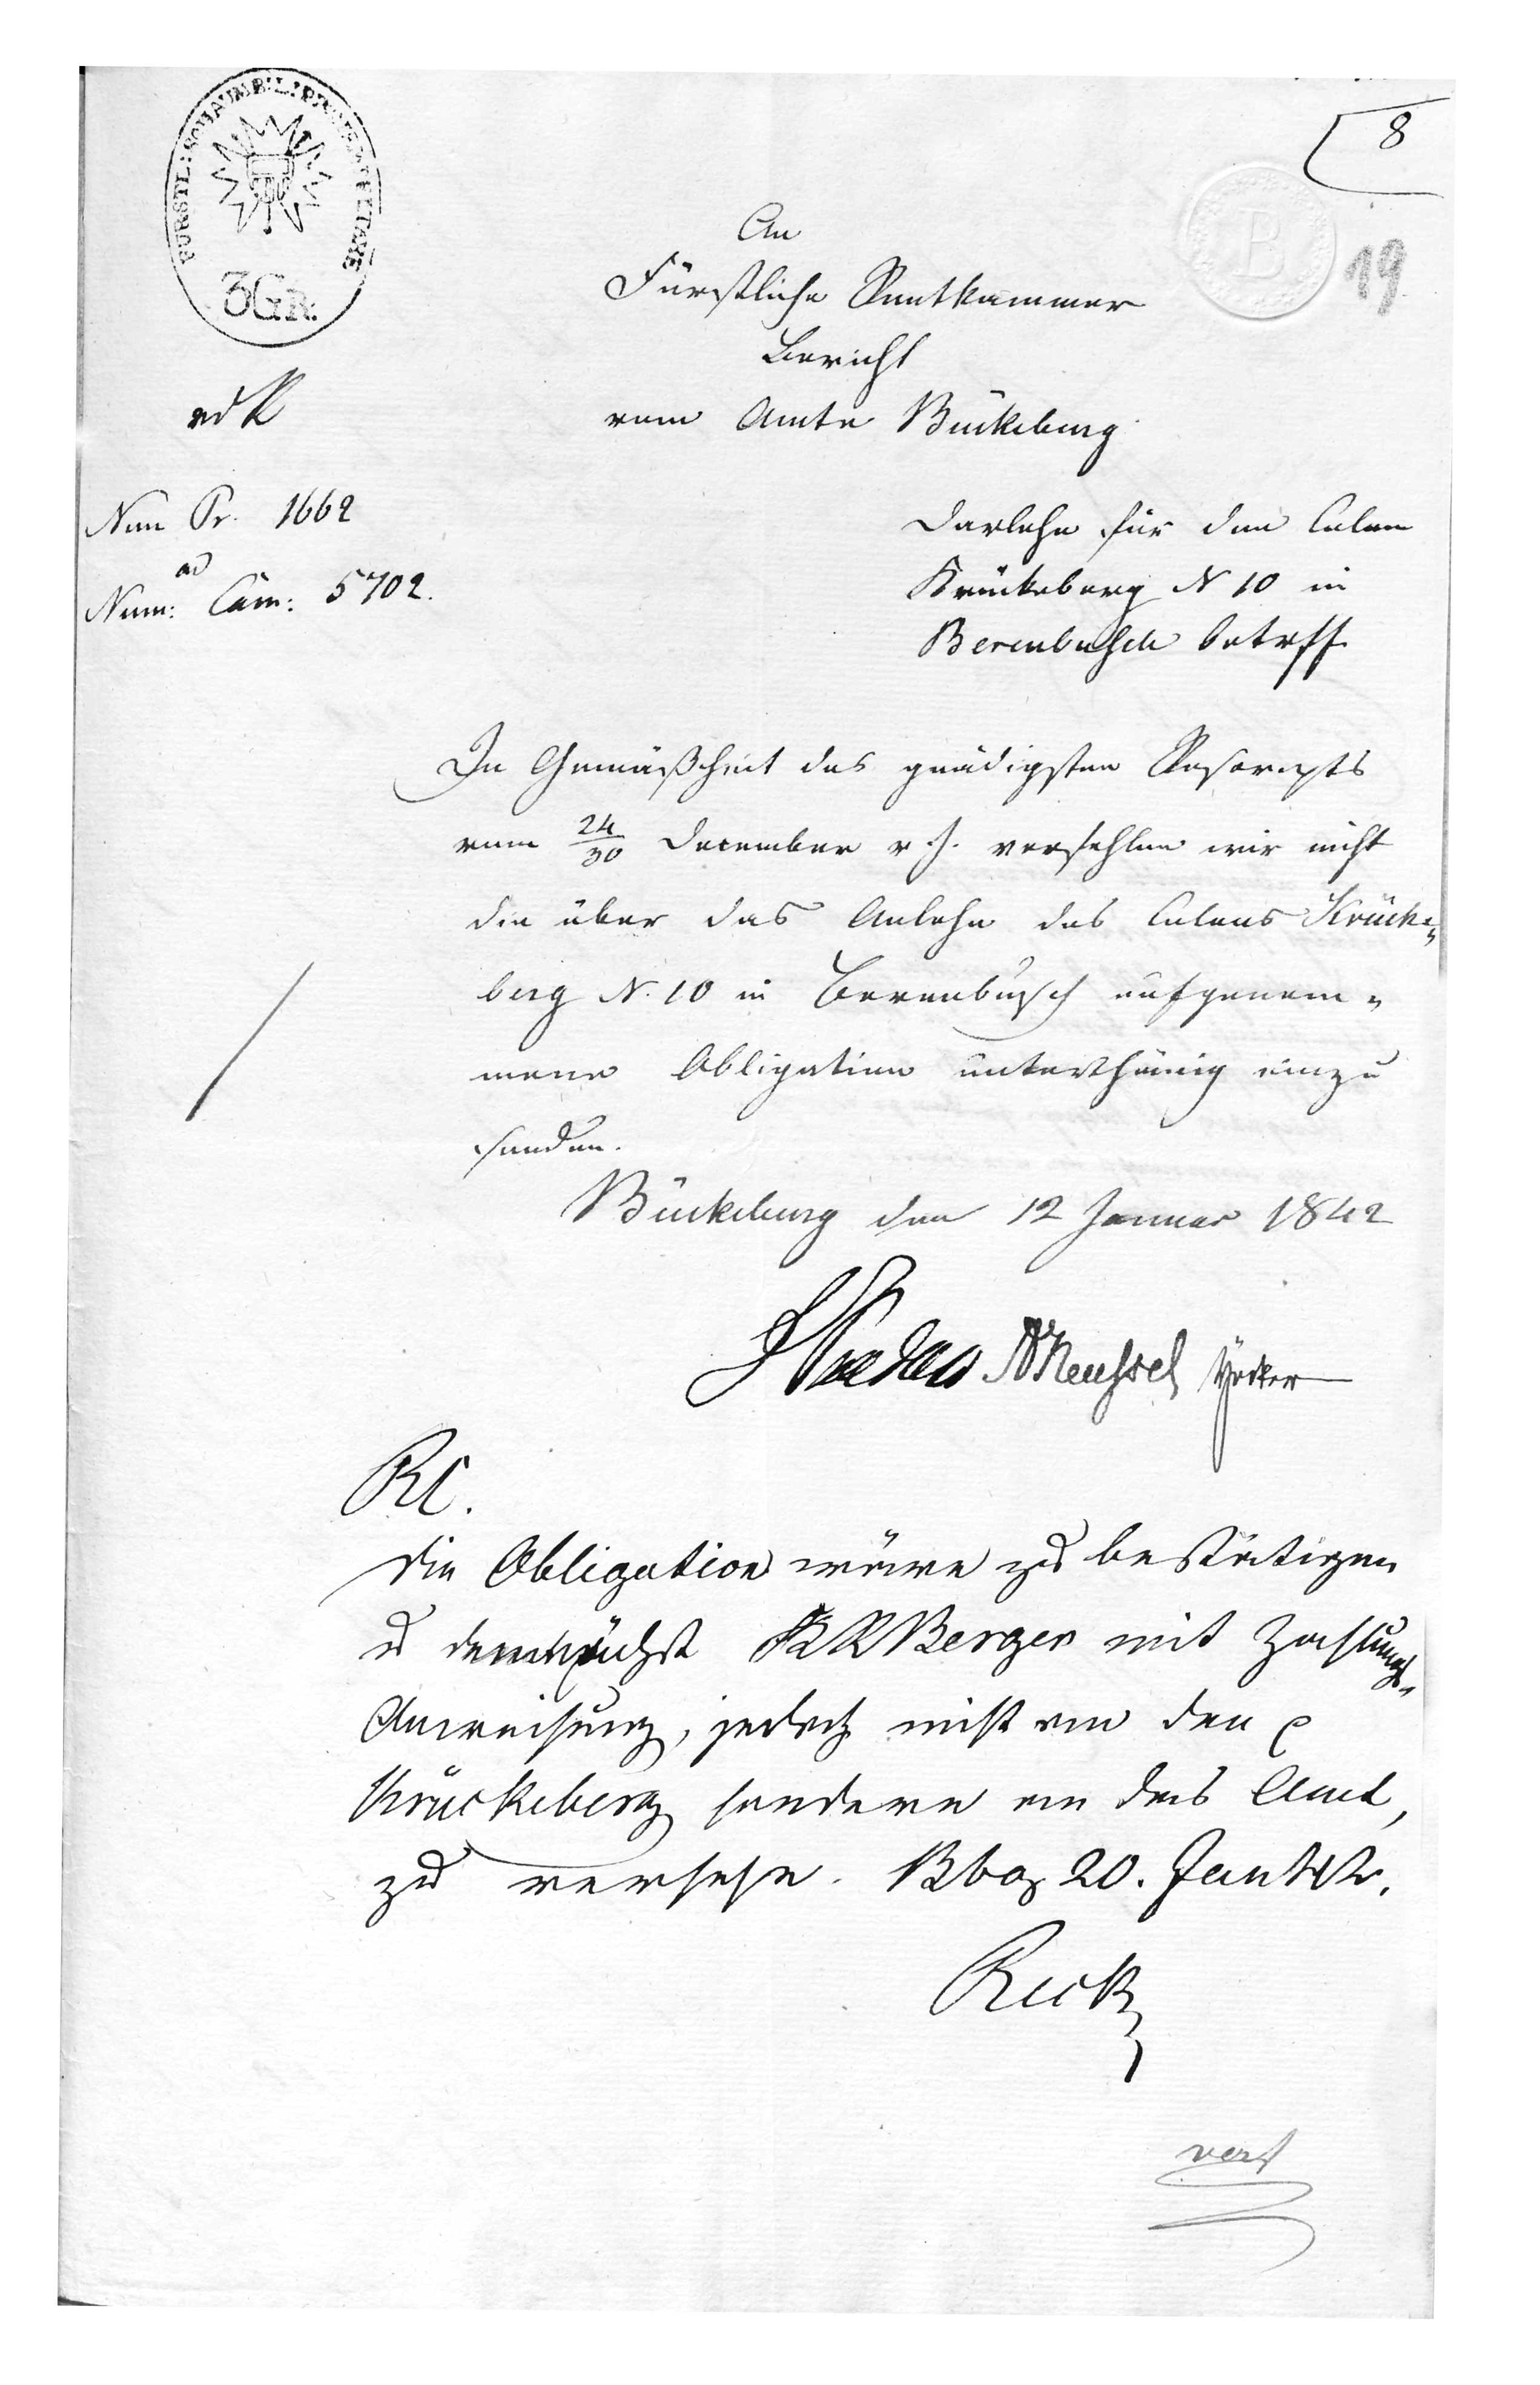 FÜRSTL: SCHAUMB: L:
3 GR.
8
19
B
An
Fürstliche Rentkammer
Bericht
vom Amte Bückeburg
Num Pr. 1662
ad
Num: Cam: 5702.
Darlehn für den Colon
Krückeberg N 10 in
Berenbusch betrff
In Gemäßheit des gnädigsten Rescripts
vom 24/30 December v. J. verfehlen wir nicht
die über das Anlehn des Colons Krücke=
berg N. 10 in Berenbusch aufgenom=
mene Obligation unterthänig einzu
senden.
Bückeburg den 12 Januar 1842
RC.
Die Obligation wäre zu bestätigen
u demnächst KR Berger mit Zahlungs=
Anweisung, jedoch nicht an den
Krückeberg sondern an das Amt,
zu versehn. Bbg 20. Jan 42.